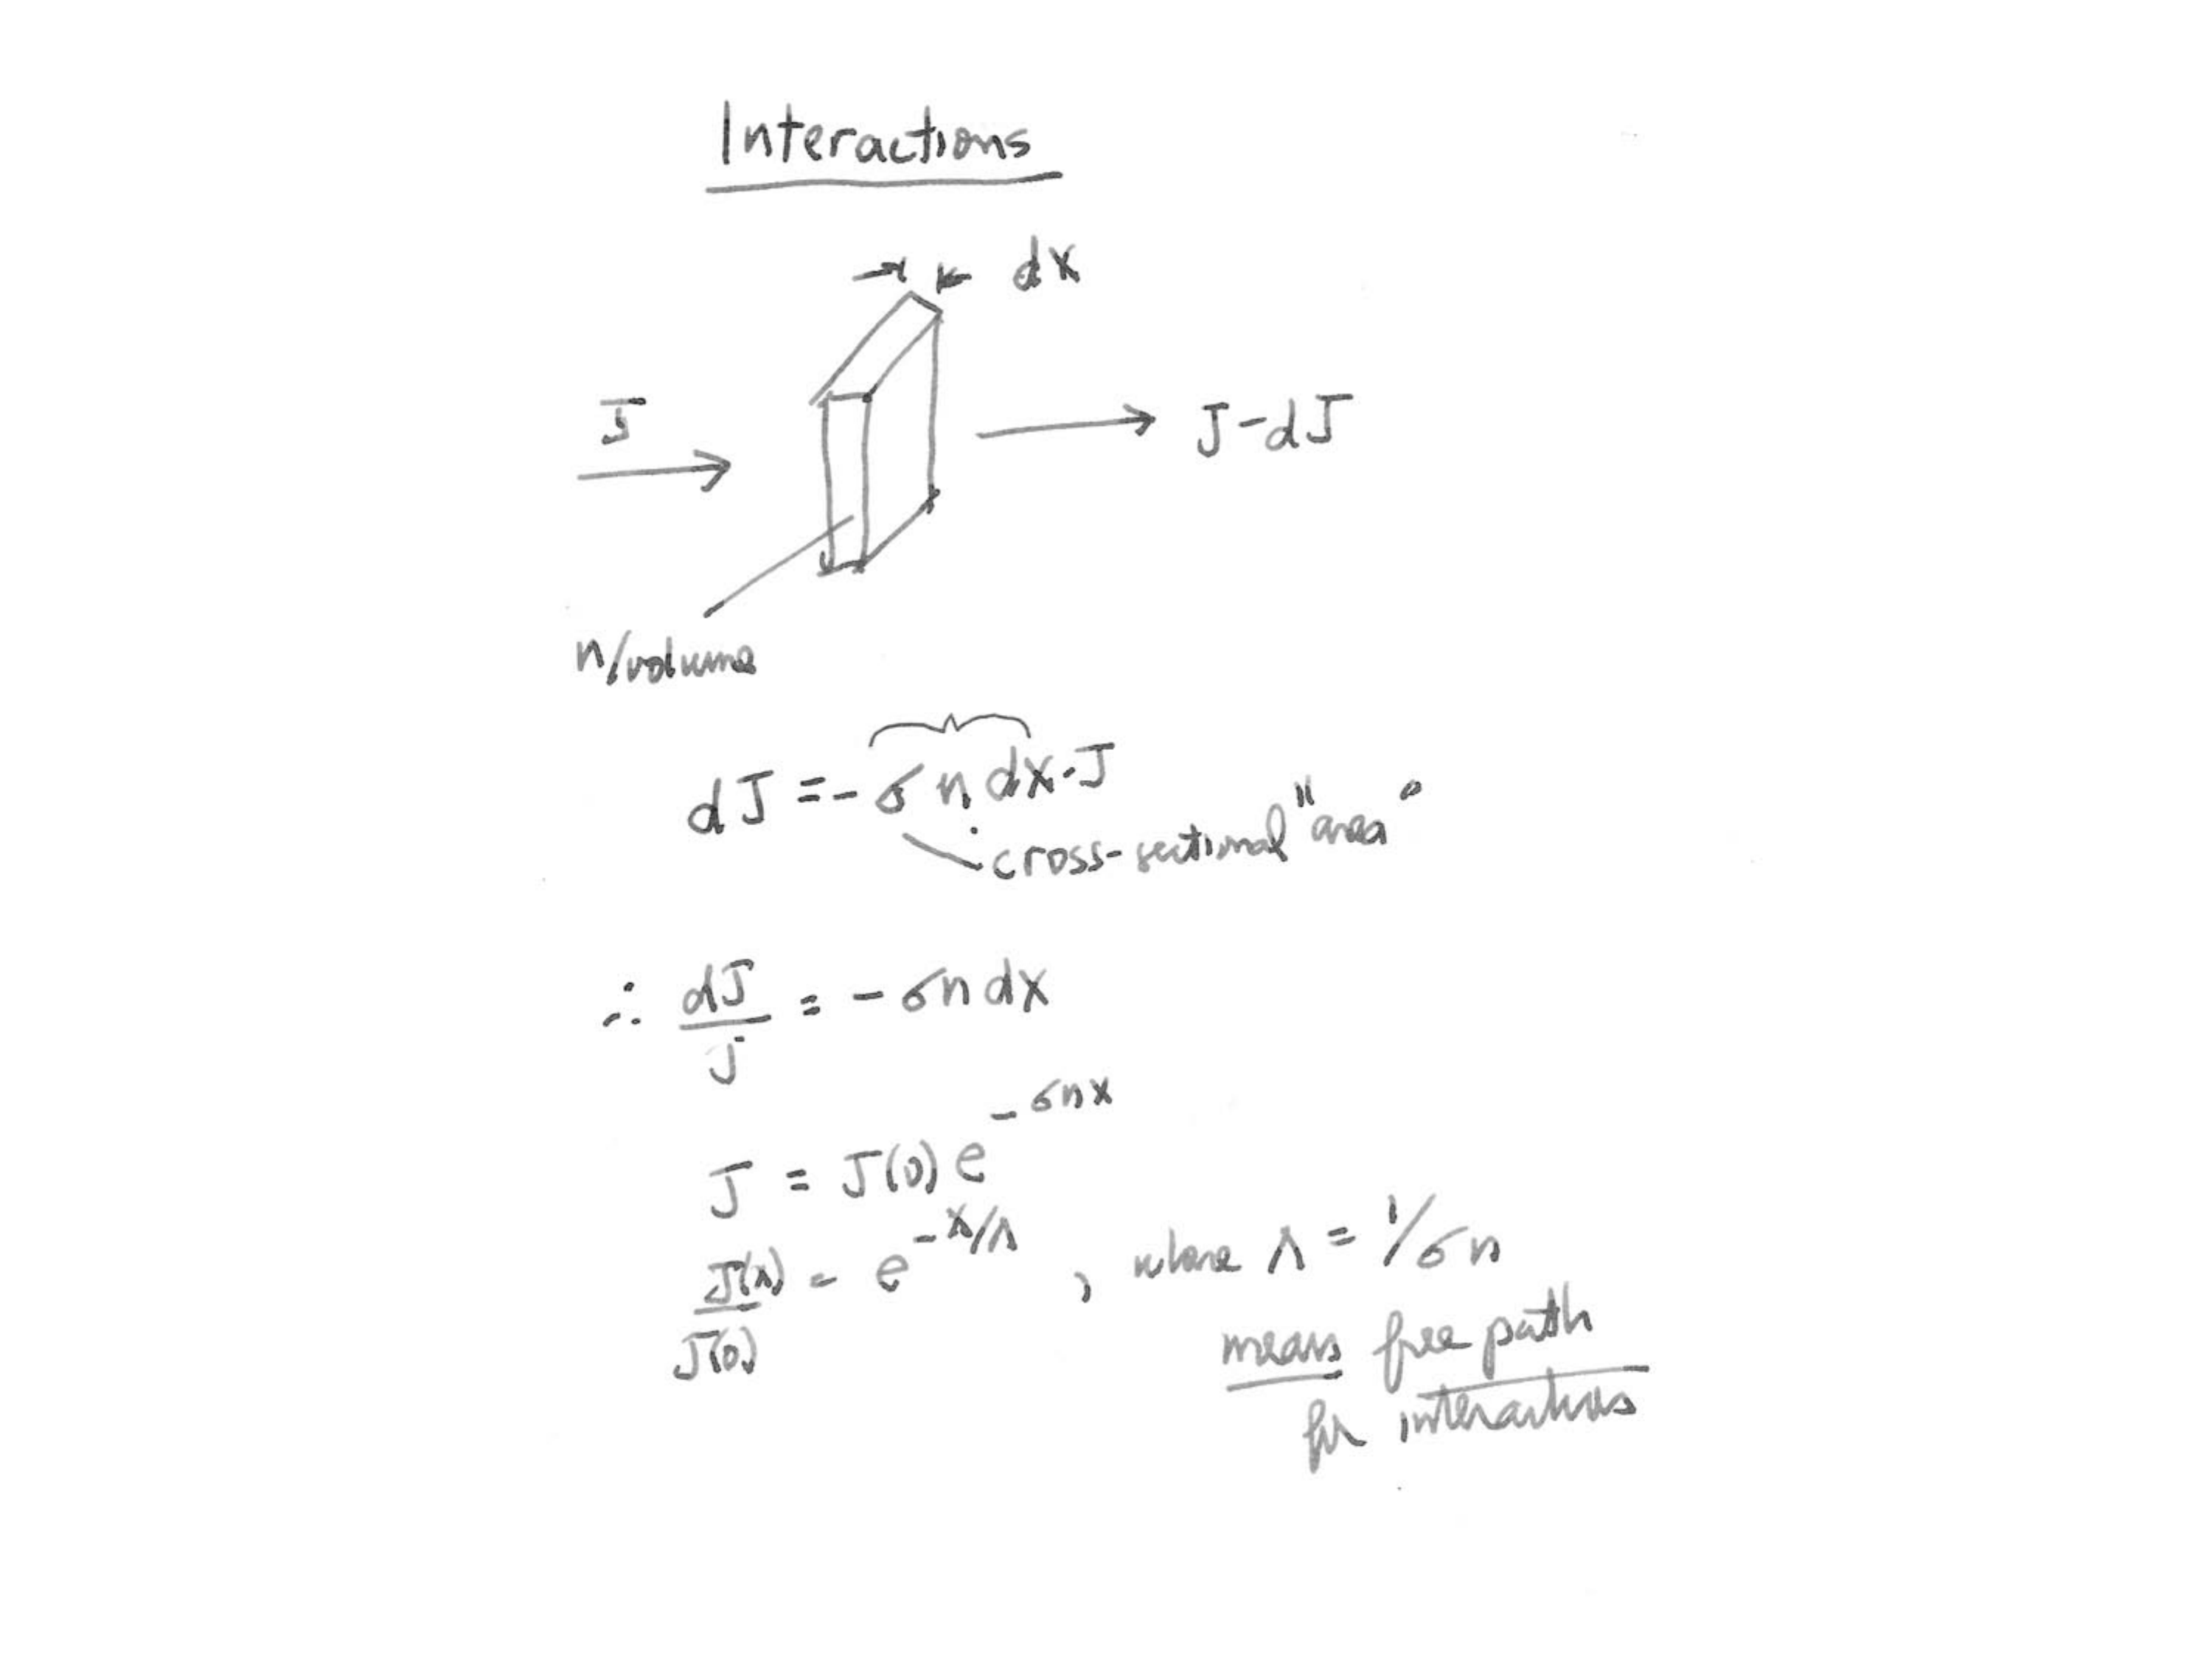 Interactions
dx
J
J-dJ
n/volume
dJ = - σ n dx · J
cross-sectional "area"
∴ dJ/J = - σn dx
J = J(0) e^{-σnx}
J(x)/J(0) = e^{-x/Λ} , where Λ = 1/σn
mean free path
for interactions